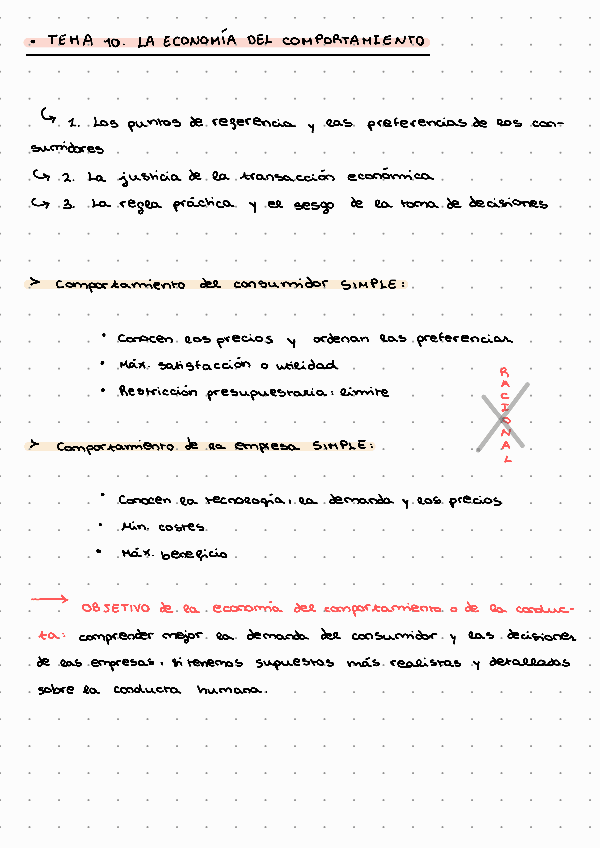 • TEMA 10. LA ECONOMÍA DEL COMPORTAMIENTO
↪ 1. Los puntos de referencia y las preferencias de los con-
sumidores
↪ 2. La justicia de la transacción económica
↪ 3. La regla práctica y el sesgo de la toma de decisiones
> Comportamiento del consumidor SIMPLE:
• Conocen los precios y ordenan las preferencias
• Máx. satisfacción o utilidad
• Restricción presupuestaria: límite
RACIONAL
> Comportamiento de la empresa SIMPLE:
• Conocen la tecnología, la demanda y los precios
• Min. costes
• Máx. beneficio
→ OBJETIVO de la economía del comportamiento o de la conduc-
ta: comprender mejor la demanda del consumidor y las decisiones
de las empresas, si tenemos supuestos más realistas y detallados
sobre la conducta humana.